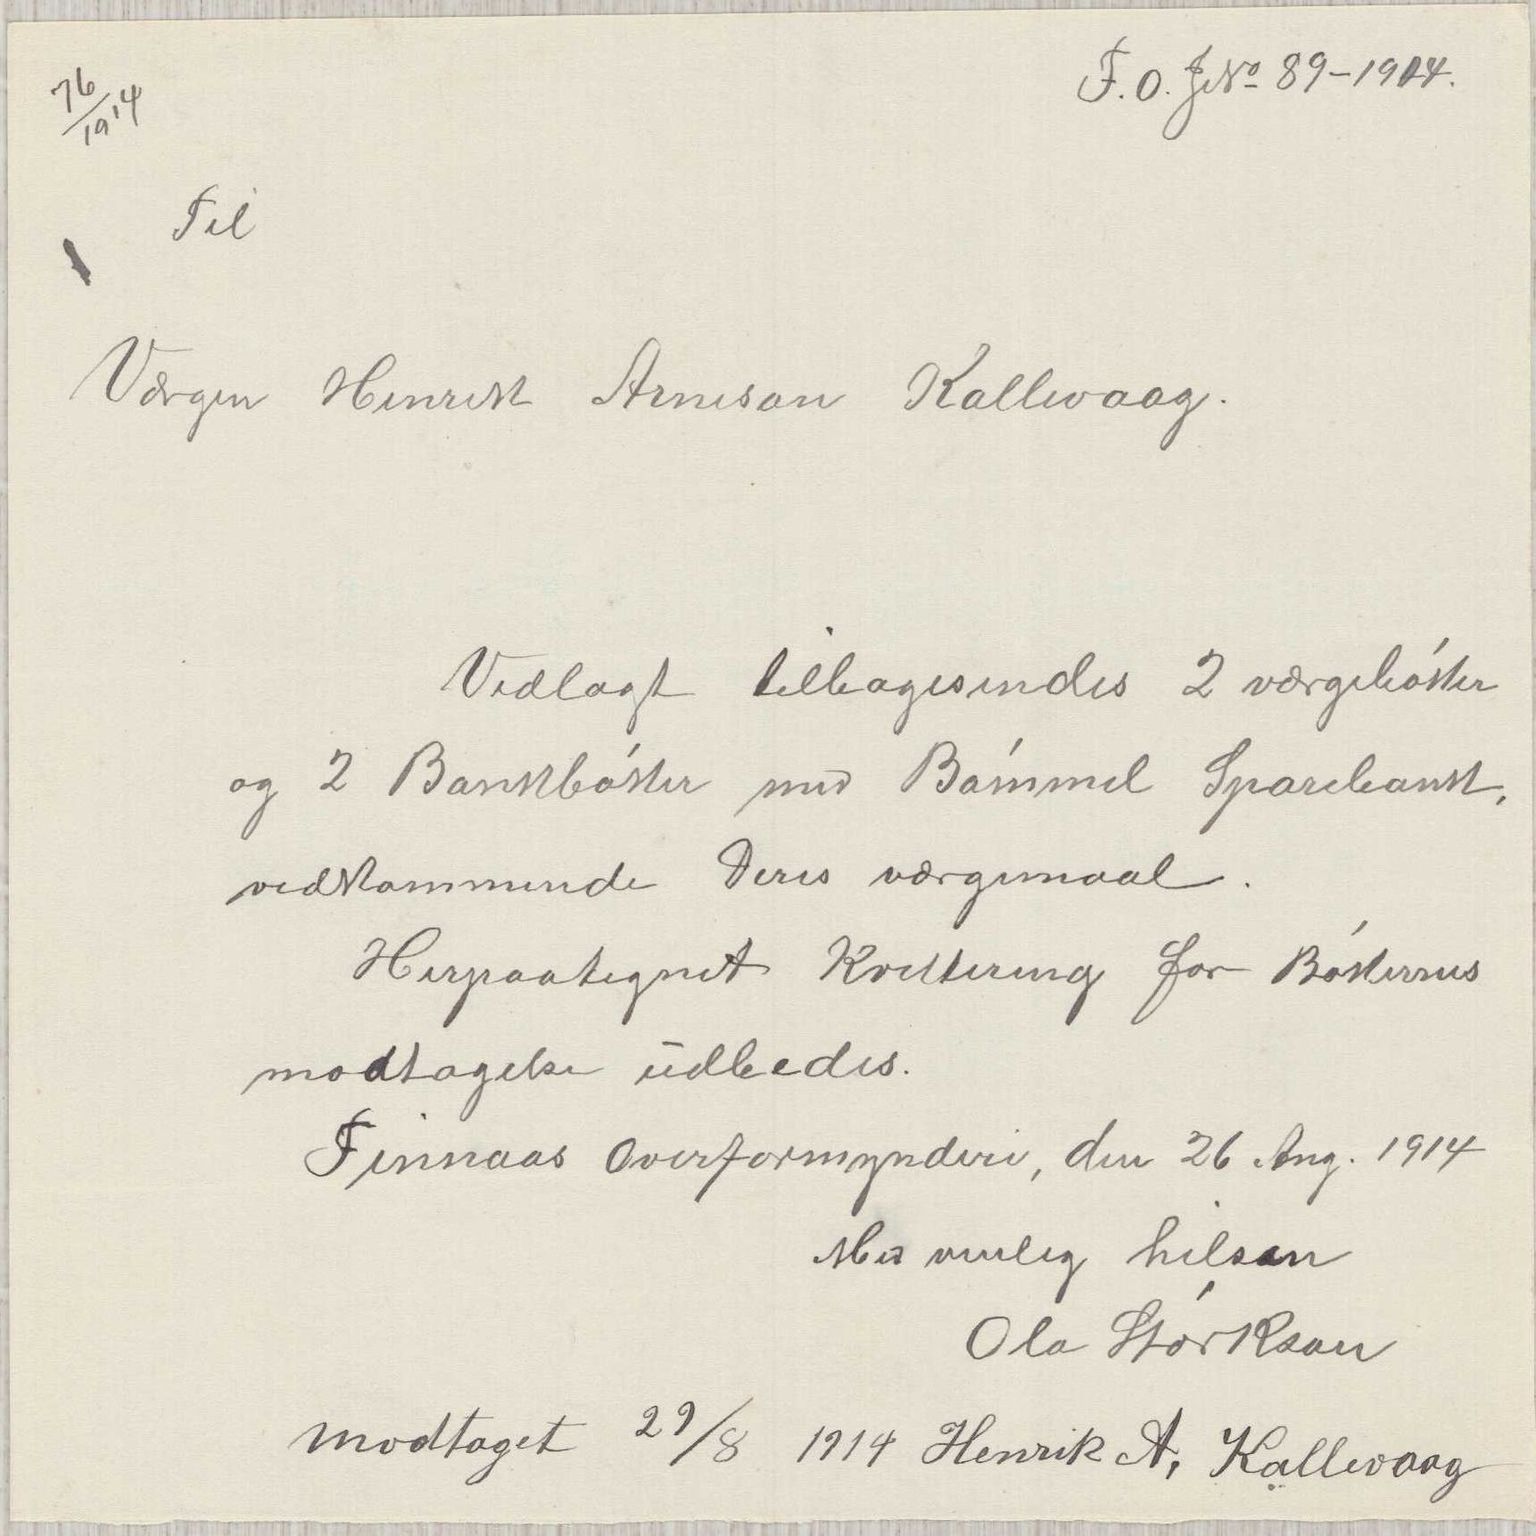 76/1914
F. O. J No 89-1914.
Til
Værgen Henrik Arneson Kallevaag.
Vedlagt tilbagesendes 2 værgebøker
og 2 Bankbøker med Bømmel Sparebank,
vedkommende Deres værgemaal.
Herpaategnet Kvittering for Bøkernes
modtagelse udbedes.
Finnaas Overformynderi, den 26 Aug. 1914
Med venlig hilsen
Ola Størkson
modtaget 29/8 1914 Henrik A, Kallevaag